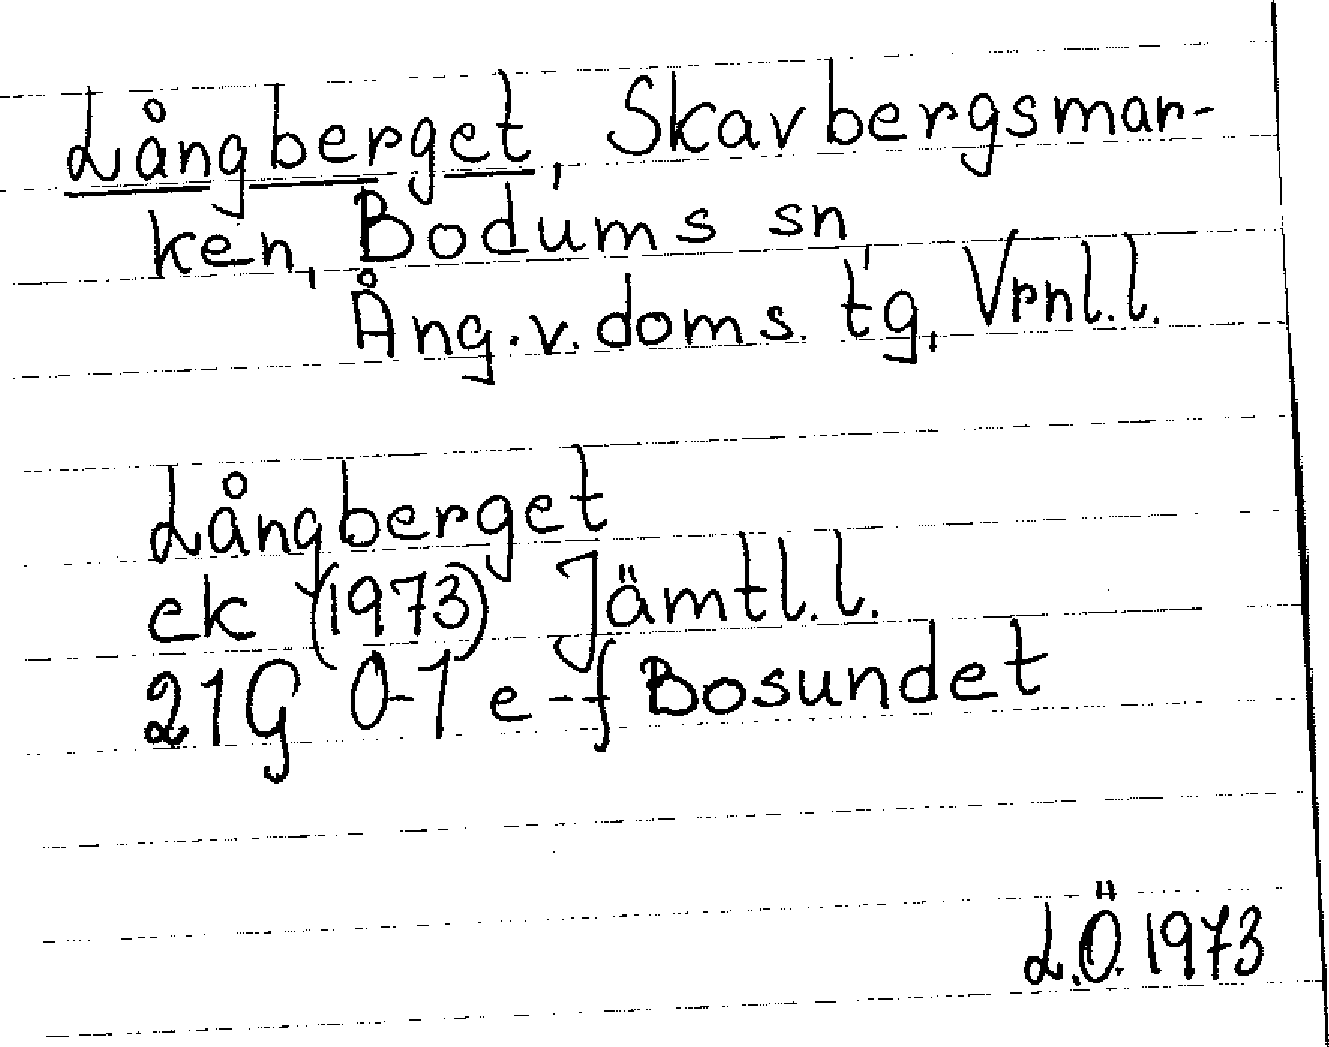 Långberget, Skavbergsmar-
ken, Bodums sn,
Ång. v. doms. tg, Vrnl. l.
Långberget
ek (1973) Jämtl. l.
21G 0-1 e-f Bosundet
L.Ö. 1973